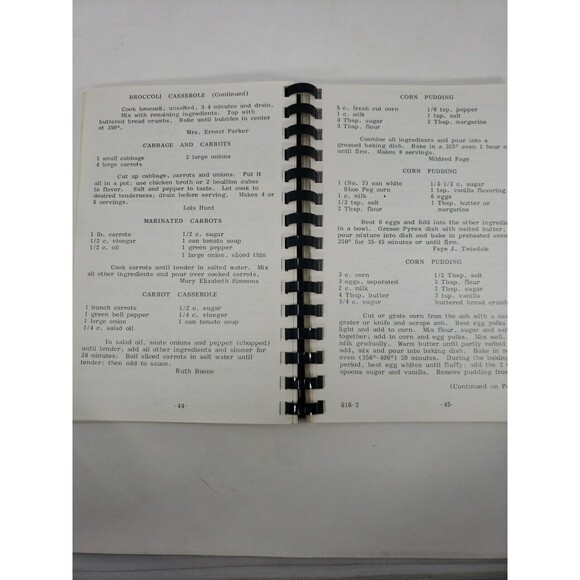 BROCCOLI CASSEROLE (Continued)
Cook broccoli, unsalted, 3-4 minutes and drain.
Mix with remaining ingredients. Top with
buttered bread crumbs. Bake until bubbles in center
at 350°.
Mrs. Ernest Parker
CABBAGE AND CARROTS
1 small cabbage 2 large onions
4 large carrots
Cut up cabbage, carrots and onions. Put it
all in a pot; use chicken broth or 2 bouillon cubes
to flavor. Salt and pepper to taste. Let cook to
desired tenderness; drain before serving. Makes 4 or
5 servings.
Lois Hunt
MARINATED CARROTS
1 lb. carrots 1/2 c. sugar
1/2 c. vinegar 1 can tomato soup
1/2 c. oil 1 green pepper
1 large onion, sliced thin
Cook carrots until tender in salted water. Mix
all other ingredients and pour over cooked carrots.
Mary Elizabeth Simmons
CARROT CASSEROLE
1 bunch carrots 1/2 c. sugar
1 green bell pepper 1/4 c. vinegar
1 large onion 1 can tomato soup
1/4 c. salad oil
In salad oil, saute onions and pepper (chopped)
until tender; add all other ingredients and simmer for
20 minutes. Boil sliced carrots in salt water until
tender; then add to sauce.
Ruth Boone
-44-
CORN PUDDING
5 c. fresh cut corn 1/8 tsp. pepper
1 c. milk 1 tsp. salt
3 Thsp. sugar 2 Thsp. margarine
3 Thsp. flour
Combine all ingredients and pour into a
greased baking dish. Bake in a 325° oven 1 hour o
until firm. Makes 8 servings.
Mildred Page
CORN PUDDING
1 (No. 2) can white 1/3-1/2 c. sugar
Blue Peg corn 1 tsp. vanilla flavoring
1 c. milk 6 eggs
1/2 tsp. salt 1 Thsp. butter or
2 Thsp. flour margarine
Beat 6 eggs and fold into the other ingredie
in a bowl. Grease Pyrex dish with melted butter;
pour mixture into dish and bake in preheated oven
350° for 35-45 minutes or until firm.
Faye J. Twisdale
CORN PUDDING
3 c. corn 1/2 Thsp. salt
3 eggs, separated 3 Thsp. flour
2 c. milk 2 Thsp. sugar
4 Thsp. butter 2 tsp. vanilla
3/4 c. sugar buttered bread crumb
Cut or grate corn from the cob with a con
grater or knife and scrape cob. Beat egg yolks
light and add to corn. Mix flour, sugar and sal
together; add to corn and egg yolks. Mix well.
milk gradually. Warm butter until partly melted
add, mix and pour into baking dish. Bake in m
oven (350°-400°) 20 minutes. During the baking
period, beat egg whites until fluffy; add the 2
spoons sugar and vanilla. Remove pudding from
(Continued on P
616-2 -45-